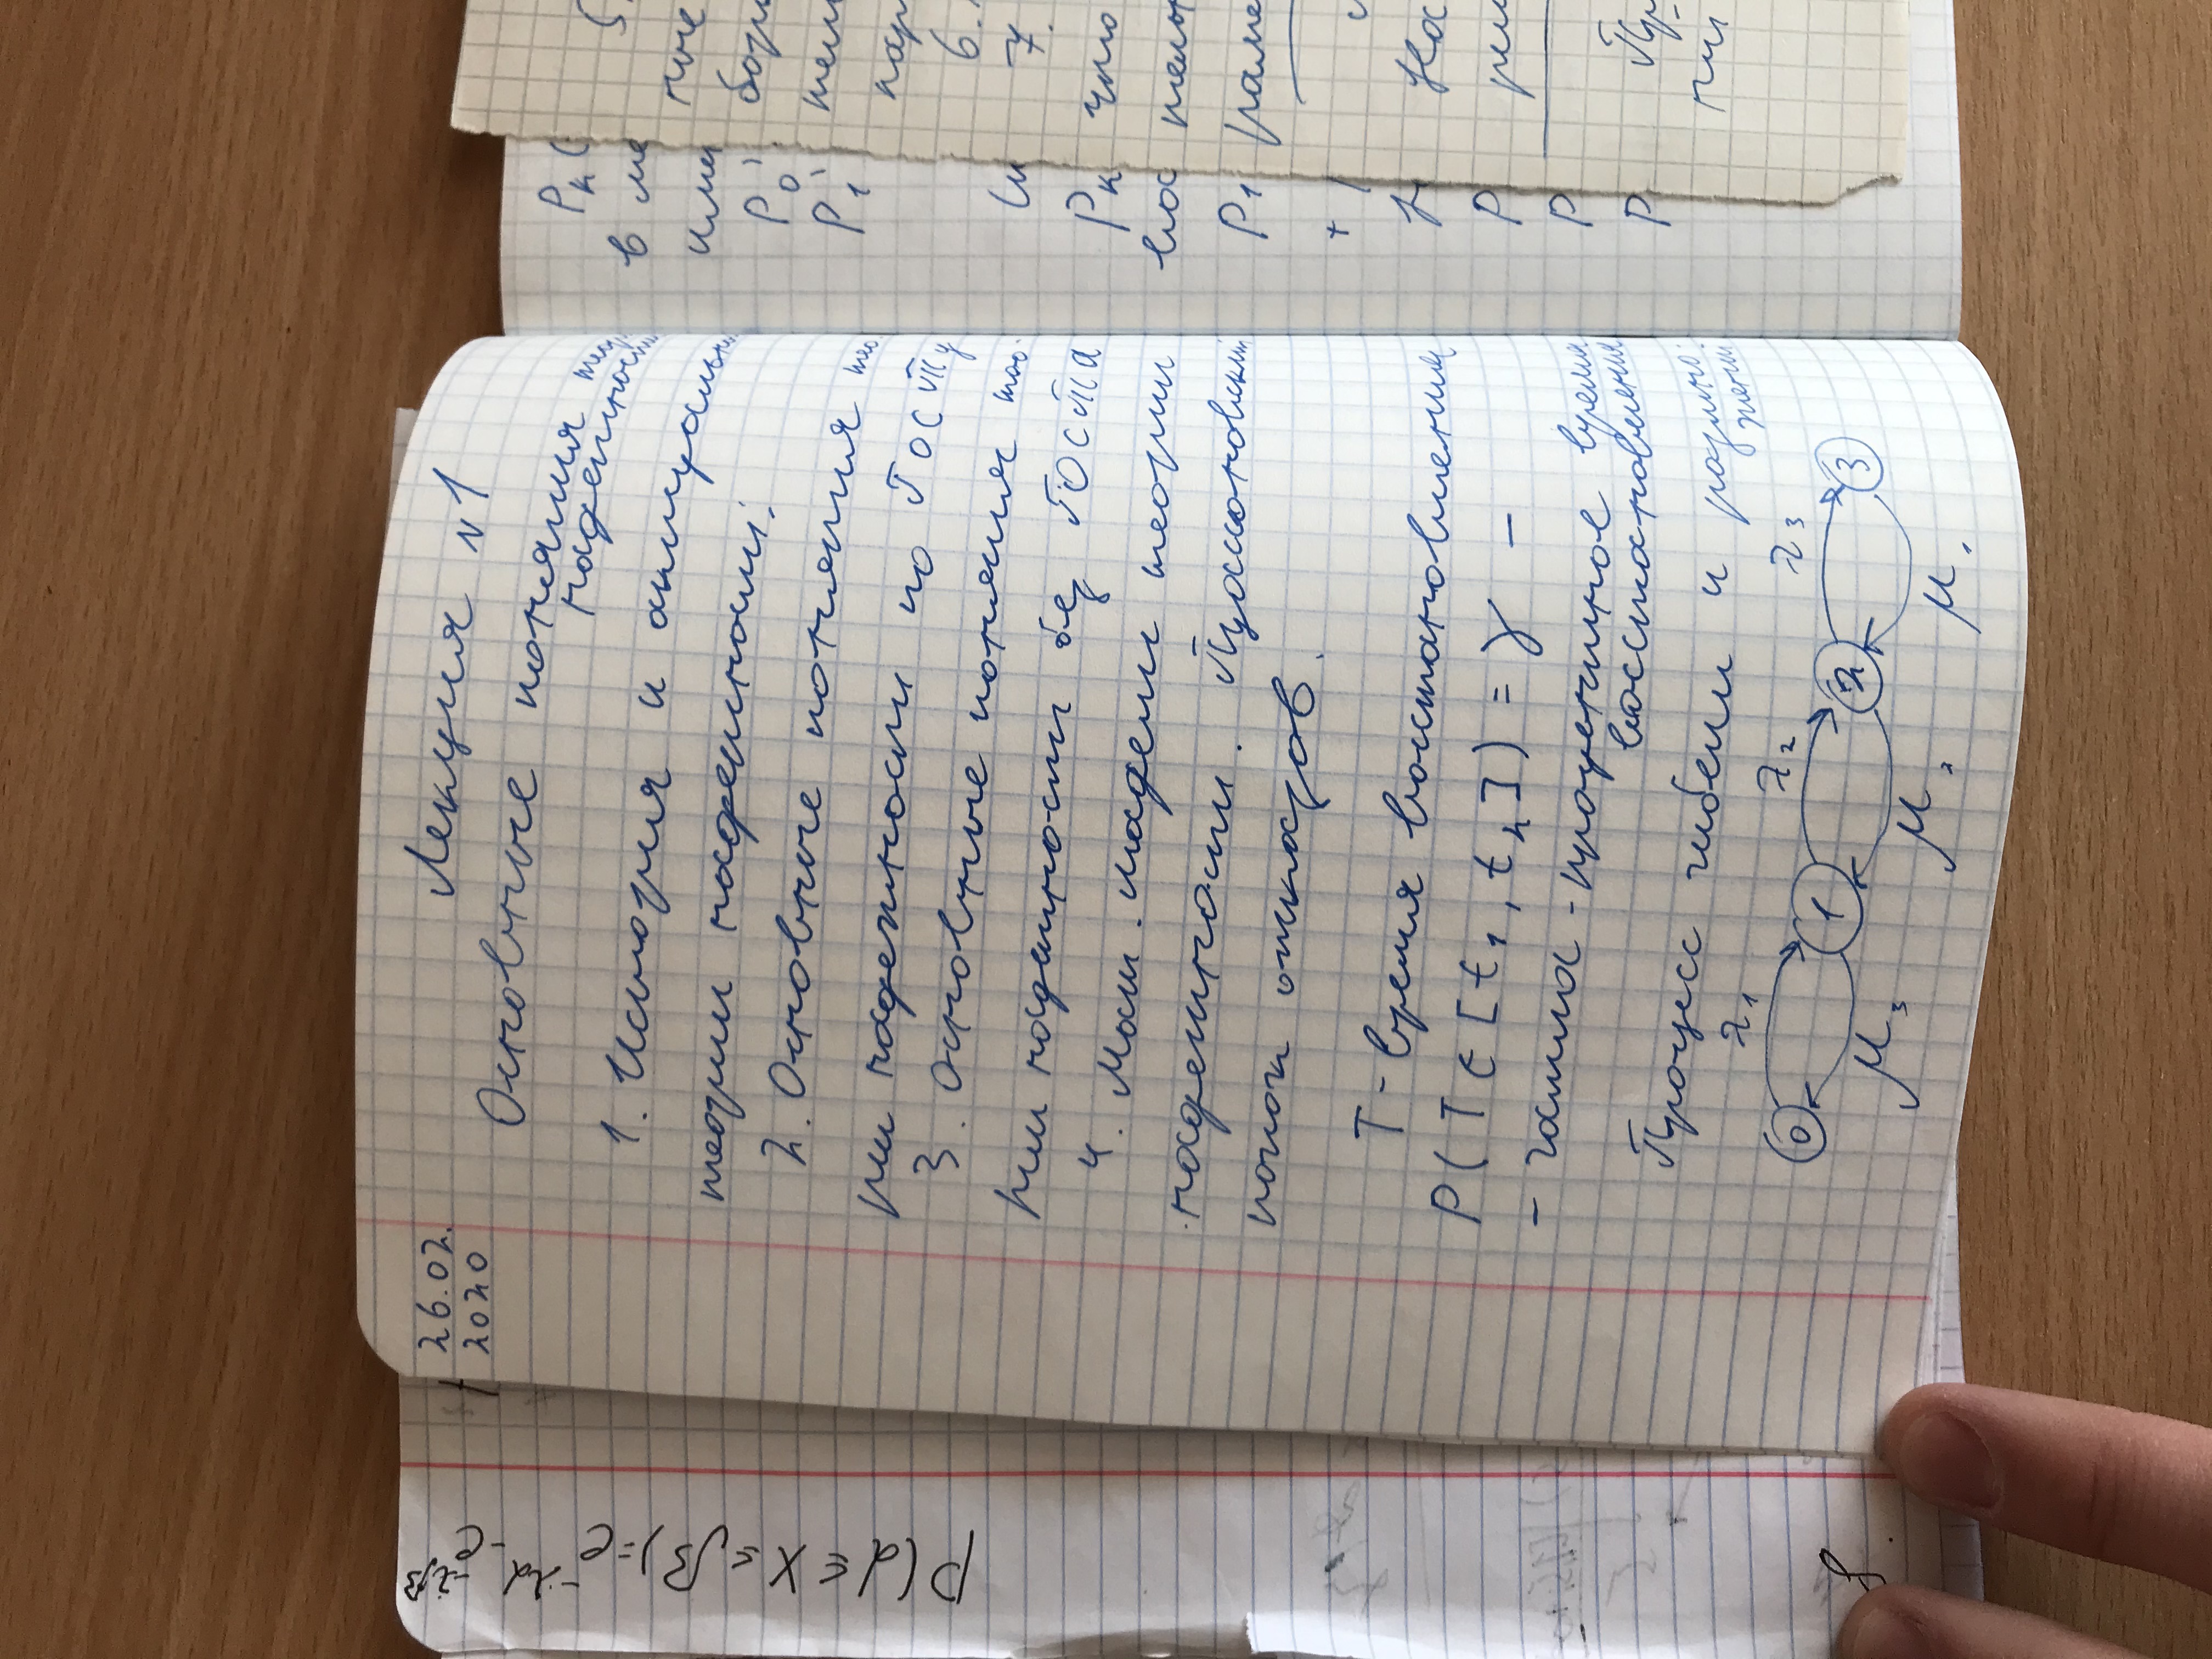 26.02.
2020
Лекция №1
Основные понятия
надежности
1. История и
теории надежности.
2. Основные понятия тео-
рии надежности по ГОСТу
3. Основные понятия тео-
рии надежности без ГОСТа
4. Мат. модели теории
надежности. Пуассоновский
поток отказов.
T - время восстановления
P(T ∈ [t₁, t₂]) = γ -
- гамма-процентное время
восстановления
Процесс гибели и размно-
жения
λ₁ λ₂ λ₃
0 1 2 3
μ₃ μ₂ μ₁
P(α ≤ X ≤ β) = e^-λα - e^-λβ
Pₖ(
в
P₀'
P₁'
Pₖ
P₁
+
P
P
P
5.
ные
6.
7.
что